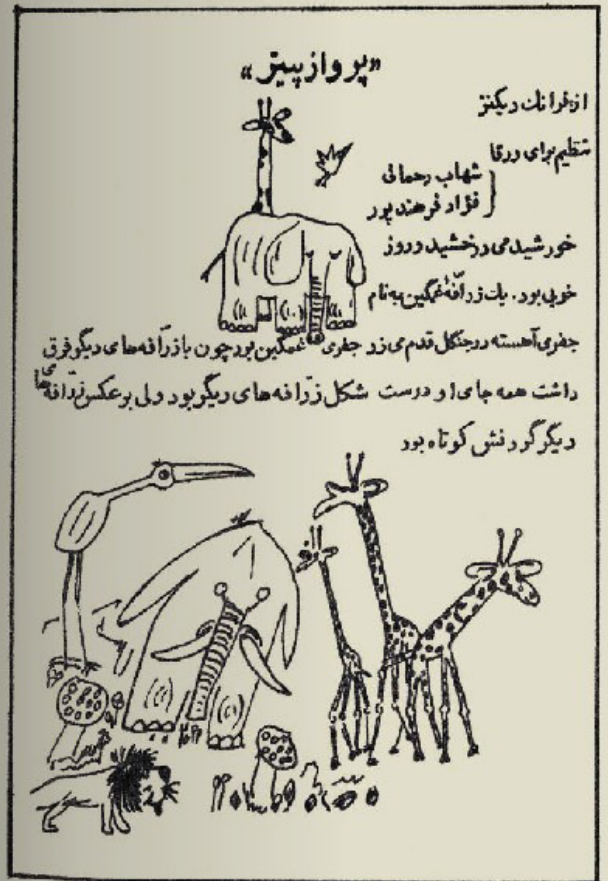 «پرواز پیتر»
از فرانک دیکنز
تنظیم برای ورقا
شهاب رحمانی
فؤاد فرهندپور
خورشید می درخشید و روز
خوبی بود. یک زرافهٔ غمگین به نام
جفری آهسته در جنگل قدم می زد جفری غمگین بود چون با زرافه های دیگر فرق
داشت همه جای او درست شکل زرافه های دیگر بود ولی برعکس زرافه های
دیگر گردنش کوتاه بود